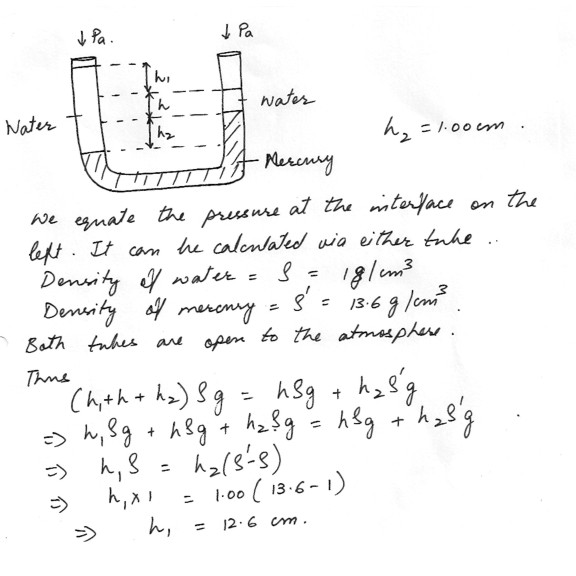 ↓Pa.
↓Pa
h₁
h
h₂
Water
Water
Mercury
h₂ = 1.00 cm .
We equate the pressure at the interface on the
left . It can be calculated via either tube ..
Density of water = ρ = 1g/cm³
Density of mercury = ρ' = 13.6 g/cm³ .
Both tubes are open to the atmosphere .
Thus
(h₁+h+h₂) ρg = hρg + h₂ρ'g
⇒ h₁ρg + hρg + h₂ρg = hρg + h₂ρ'g .
⇒ h₁ρ = h₂(ρ'-ρ)
⇒ h₁x1 = 1.00 ( 13.6-1)
⇒ h₁ = 12.6 cm.